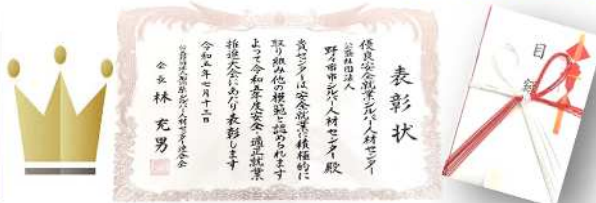 表彰状
優良安全就業シルバー人材センター
公益社団法人
野々市市シルバー人材センター殿
貴センターは安全就業に積極的に
取り組み他の模範と認められます
よって令和五年度安全・適正就業
推進大会にあたり表彰します
令和五年七月十三日
会長 林 充男
目録